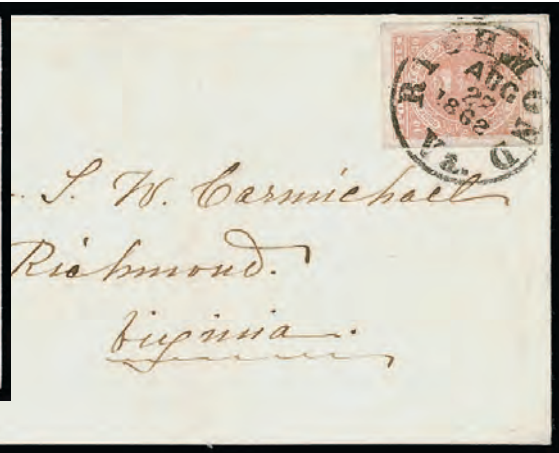 RICHMOND
AUG
27
1862
VA.
S. W. Carmichael
Richmond.
Virginia.